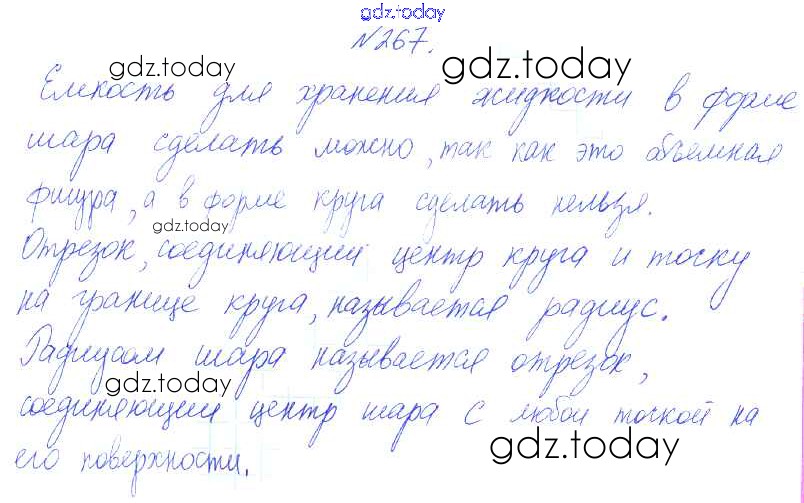 gdz.today
№267.
gdz.today gdz.today
Емкость для хранения жидкости в форме
шара сделать можно, так как это объемная
фигура, а в форме круга сделать нельзя.
gdz.today
Отрезок, соединяющий центр круга и точку
на границе круга, называется радиус.
Радиусом шара называется отрезок,
gdz.today
соединяющий центр шара с любой точкой на
gdz.today
его поверхности.